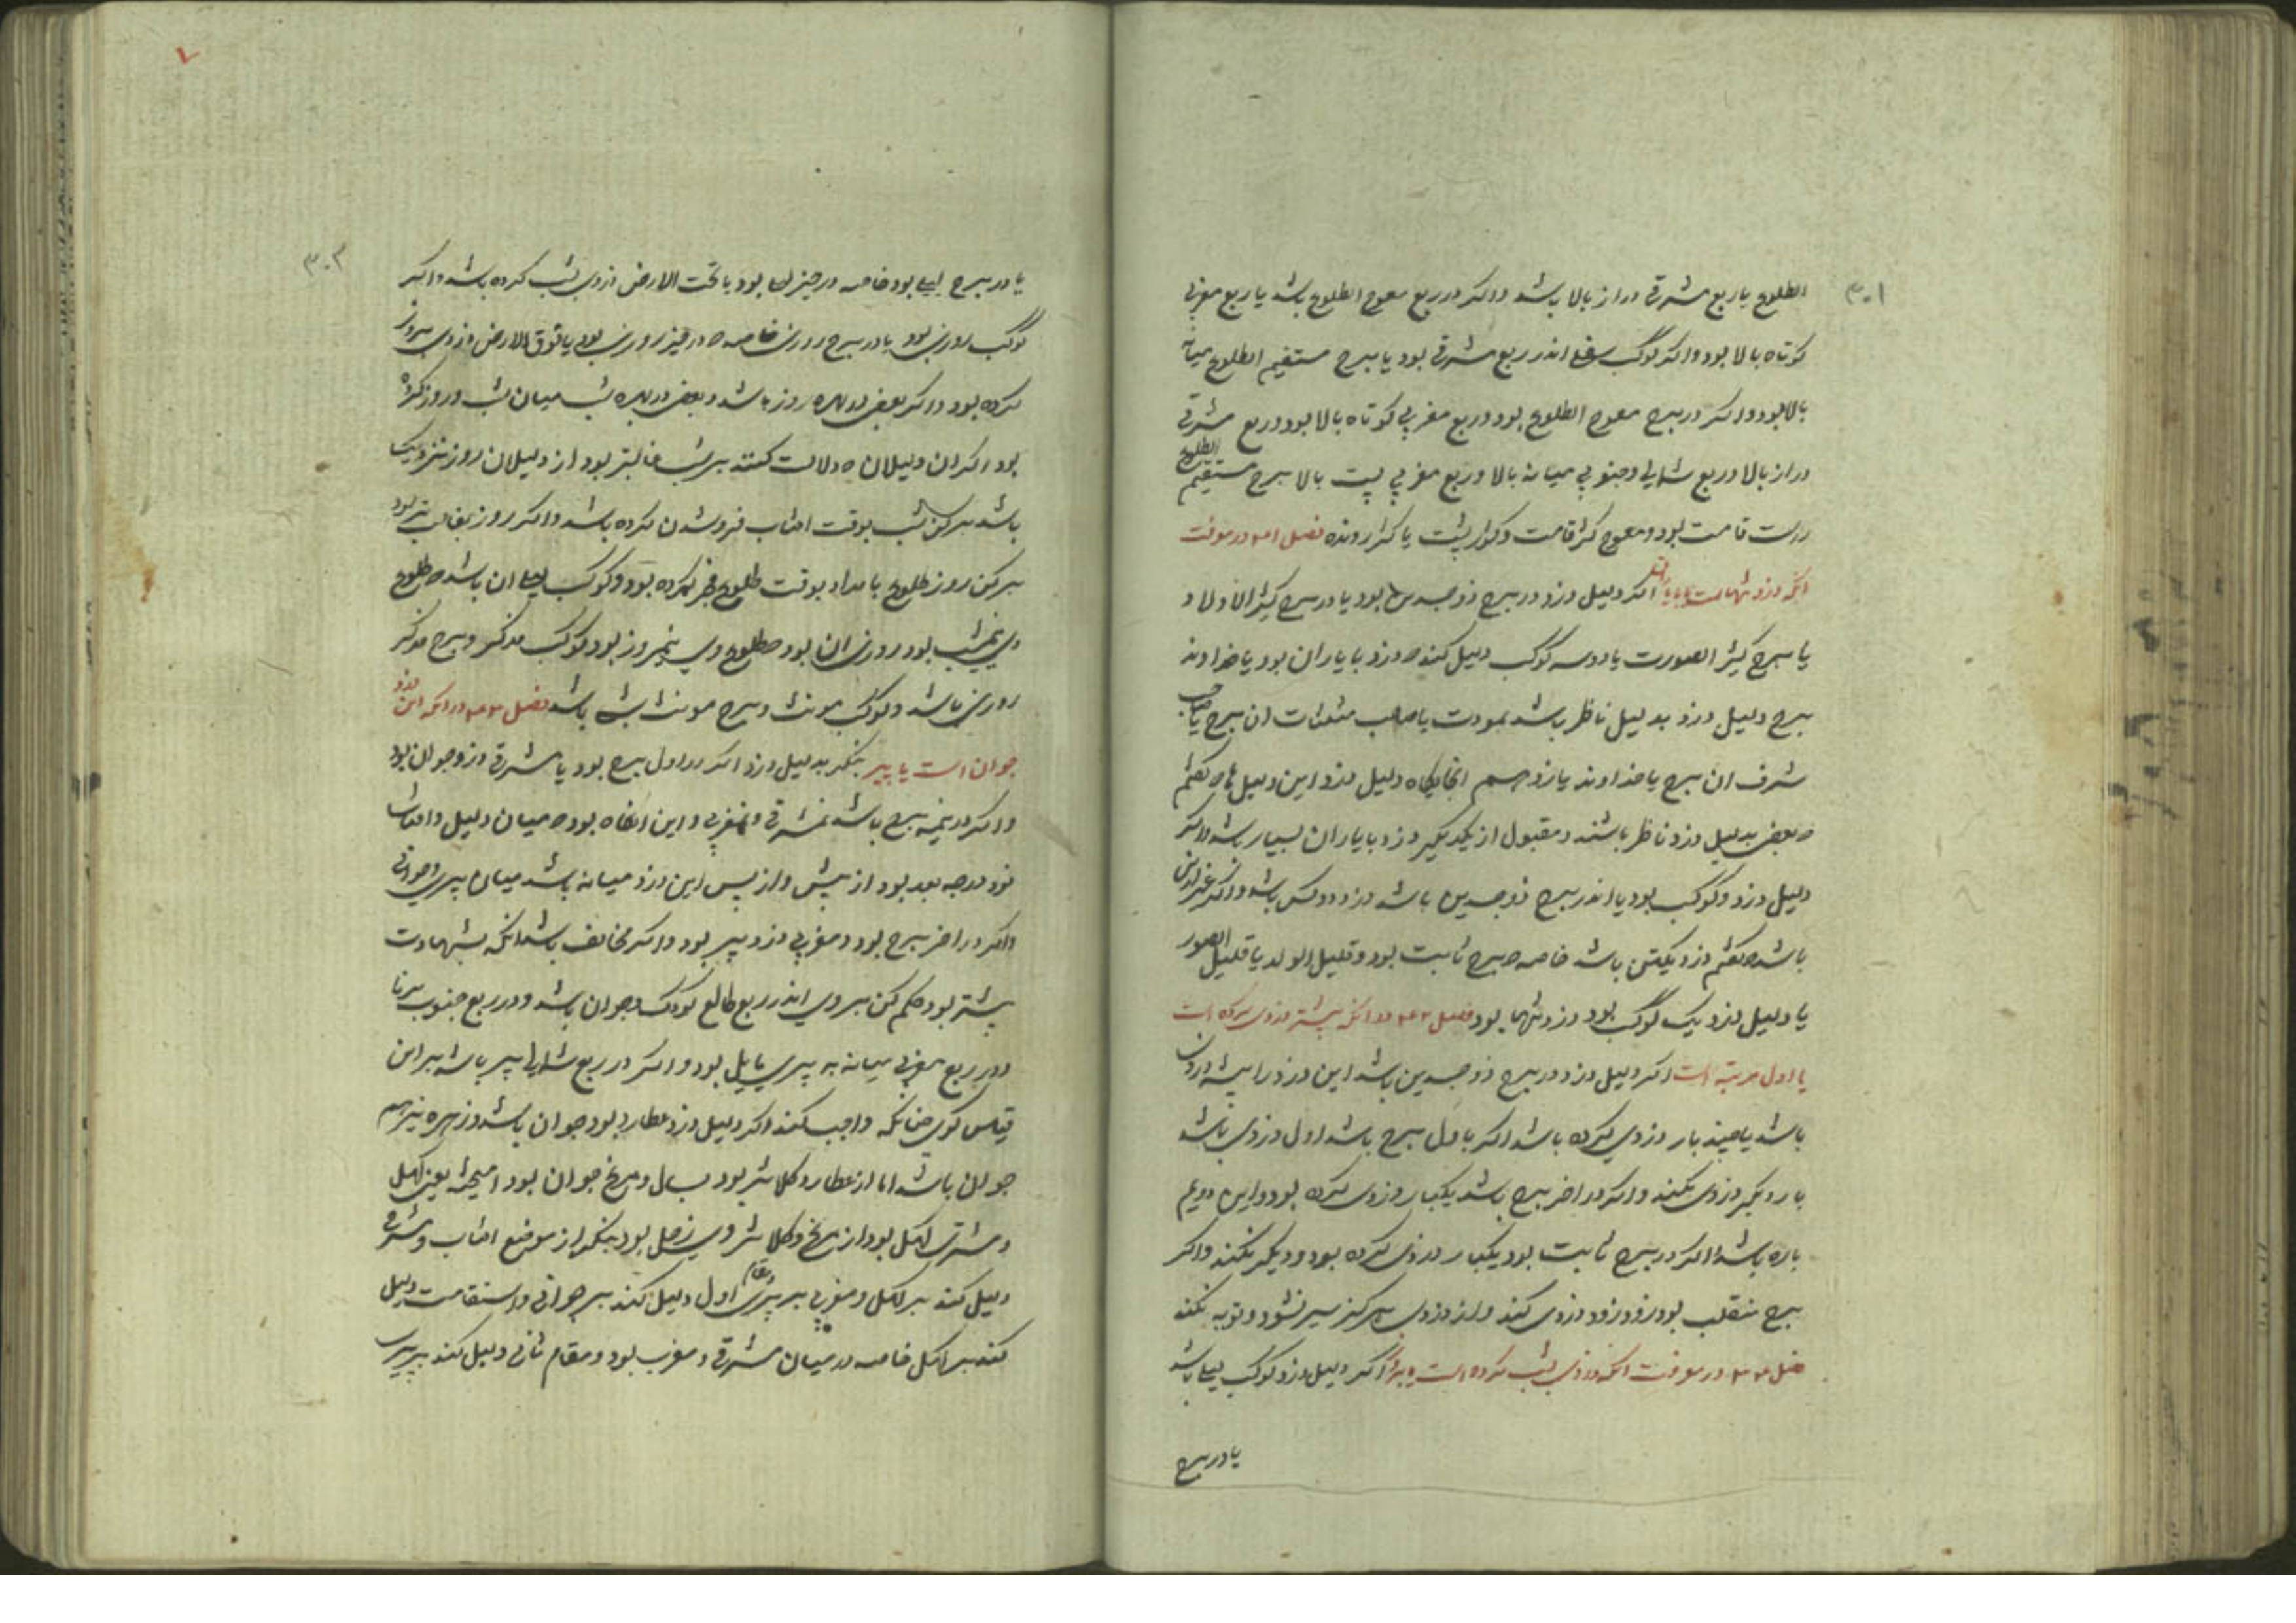 ۳۰۱
الطلوع یا ربع مشرقی دراز بالا باشد و اکر در ربع معوج الطلوع باشد یا ربع مغربی
کوتاه بالا بود و اکر کوکب اندر ربع مشرقی بود یا برج مستقیم الطلوع میانه
بالا بود و اکر در برج معوج الطلوع بود و ربع مغربی کوتاه بالا بود و ربع مشرقی
دراز بالا و ربع شمالی و جنوبی میانه بالا و ربع مغربی پست بالا برج مستقیم الطلوع
راست قامت بود و معوج کژ قامت و کوژ پشت یا کژ رونده فصل در معرفت
انکه دزد تنهاست یا با یار اکر دلیل دزد در برج ذو جسدین بود یا در برج کثیر الاولاد
یا برج کثیر الصورت یا دو سه کوکب دلیل کند دزد با یاران بود یا خداوند
برج دلیل دزد بدلیل ناظر باشد بمودت یا صاحب مثلثات ان برج یا صاحب
شرف ان برج یا خداوند یازدهم انجایکاه دلیل دزد این دلیل ها که کفتم
بعضی بدلیل دزد ناظر باشند و مقبول از یکدیکر دزد با یاران بسیار باشد و اکر
دلیل دزد دو کوکب بود یا اندر برج ذو جسدین باشد دزد دو کس باشد و اکر غیر این
باشد که کفتم دزد یکتن باشد خاصه برج ثابت بود و قلیل الولد یا قلیل الصور
یا دلیل دزد یک کوکب بود دزد تنها بود فصل در انکه پیشتر دزدی کرده است
یا اول مرتبه است اکر دلیل دزد در برج ذو جسدین باشد این دزد را پیشه دزدی
باشد یا چند بار دزدی کرده باشد اکر باول برج باشد اول دزدی باشد
بار دیکر دزدی نکند و اکر در اخر برج باشد یکبار دزدی کرده بود و این دویم
باره باشد اکر در برج ثابت بود یکبار دزدی کرده بود و دیکر نکند و اکر
برج منقلب بود زود زود دزدی کند و از دزدی هرکز سیر نشود و توبه نکند
فصل در معرفت انکه دزدی بشب کرده است یا بروز اکر دلیل دزد کوکب لیلی باشد
یا در برج
۳۰۲
یا در برج لیلی بود خاصه در حیز بود یا تحت الارض دزدی بشب کرده باشد و اکر
کوکب روزی بود یا در برج روزی خاصه در حیز روزی بود یا فوق الارض دزدی بروز
کرده بود و اکر بعضی روز باشد و بعضی شب میان شب و روز کرده
بود اکر ان دلیلان که دلالت کنند بر شب غالبتر بود از دلیلان روز نزدیک
باشد شب بوقت افتاب فرو شدن کرده باشد و اکر روز غالب تر بود
روز طلوع بامداد بوقت طلوع فجر کرده بود و کوکب لیلی ان باشد طلوع
وی نیمشب بود روزی ان بود طلوع وی نیمروز بود کوکب مذکر و برج مذکر
روزی باشد و کوکب مونث و برج مونث شبی باشد فصل در انکه این دزد
جوان است یا پیر بنکر بدلیل دزد اکر در اول برج بود یا مشرقی دزد جوان بود
و اکر در نیمه برج باشد نه مشرقی و نه مغربی و این انکاه بود میان دلیل و افتاب
نود درجه بعد بود از پیش و از پس این دزد میانه باشد میان پیری و جوانی
و اکر در اخر برج بود و مغربی دزد پیر بود و اکر مخالف باشد انکه بشهادت
پیشتر بود حکم کن بر وی اندر ربع طالع کودک و جوان باشد و در ربع جنوب برنا
و در ربع مغربی میانه به پیری مایل بود و اکر در ربع شمالی پیر باشد بر این
قیاس کوی چنانکه واجب کند اکر دلیل دزد عطارد بود جوان باشد و زهره نیز هم
جوان باشد اما از عطارد کلانتر بود بسال و مریخ جوان بود یعنی کهل
و مشتری کهل بود از مریخ و کلانتر زحل بود بنکر از موضع افتاب و مشرق
دلیل کند بر کهل و مغربی بر پیری مقام اول دلیل کند بر جوانی و استقامت دلیل
کند بر کهل خاصه در میان مشرقی و مغرب بود و مقام ثانی دلیل کند بر پیری